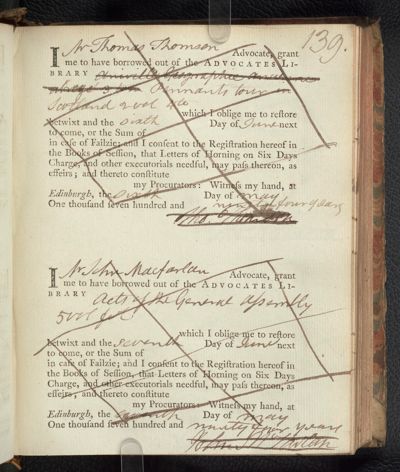 139.
I Mr Thomas Thomson Advocate, grant
me to have borrowed out of the ADVOCATES LI-
BRARY
Pennants tour in
Scotland 2 vol 4to
which I oblige me to restore
betwixt and the sixth Day of June next
to come, or the Sum of
in case of Failzie; and I consent to the Registration hereof in
the Books of Session, that Letters of Horning on Six Days
Charge, and other executorials needful, may pass thereon, as
effeirs; and thereto constitute
my Procurators: Witness my hand, at
Edinburgh, the sixth Day of may
One thousand seven hundred and ninety four years
Tho. Thomson
I Mr John Macfarlan Advocate, grant
me to have borrowed out of the ADVOCATES LI-
BRARY Acts of the General Assembly
5 vol
which I oblige me to restore
betwixt and the seventh Day of June next
to come, or the Sum of
in case of Failzie; and I consent to the Registration hereof in
the Books of Session, that Letters of Horning on Six Days
Charge, and other executorials needful, may pass thereon, as
effeirs; and thereto constitute
my Procurators: Witness my hand, at
Edinburgh, the seventh Day of may
One thousand seven hundred and ninety four years